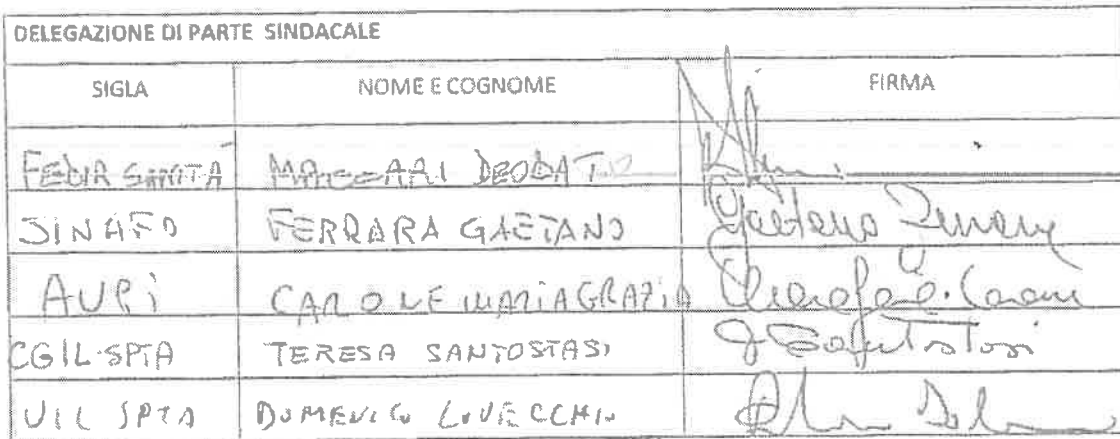 DELEGAZIONE DI PARTE SINDACALE
SIGLA NOME E COGNOME FIRMA
FEDIR SANITÀ MACCARI DEODATO
SINAFO FERRARA GAETANO Gaetano Ferrara
AUPI CAROLE MARIAGRAZIA
CGIL-SPTA TERESA SANTOSTASI Santostasi
UIL SPTA DOMENICO LOVECCHIO